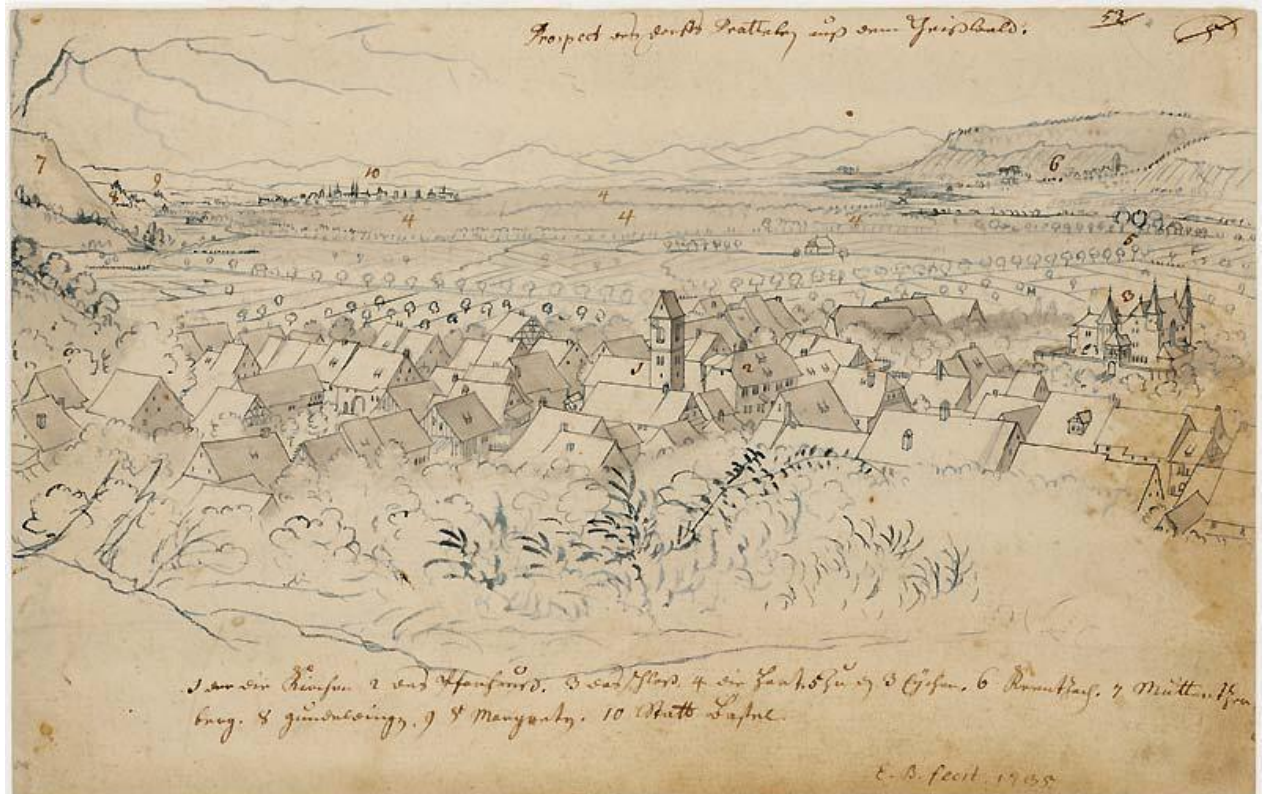 Prospect des dorfs Prattelen auß dem Geißwald.
53
7 8 9 10 6
4 4 4 4
5
3
1 2
1 die Kirchen 2 das Pfarrhauß. 3 das schloß. 4 die Hart. 5 Zu 3 Eychen. 6 Krentzach. 7 Muttentzer
berg. 8 gundeldingen. 9 St Margreten. 10 Statt Basel.
E. B. fecit. 1735